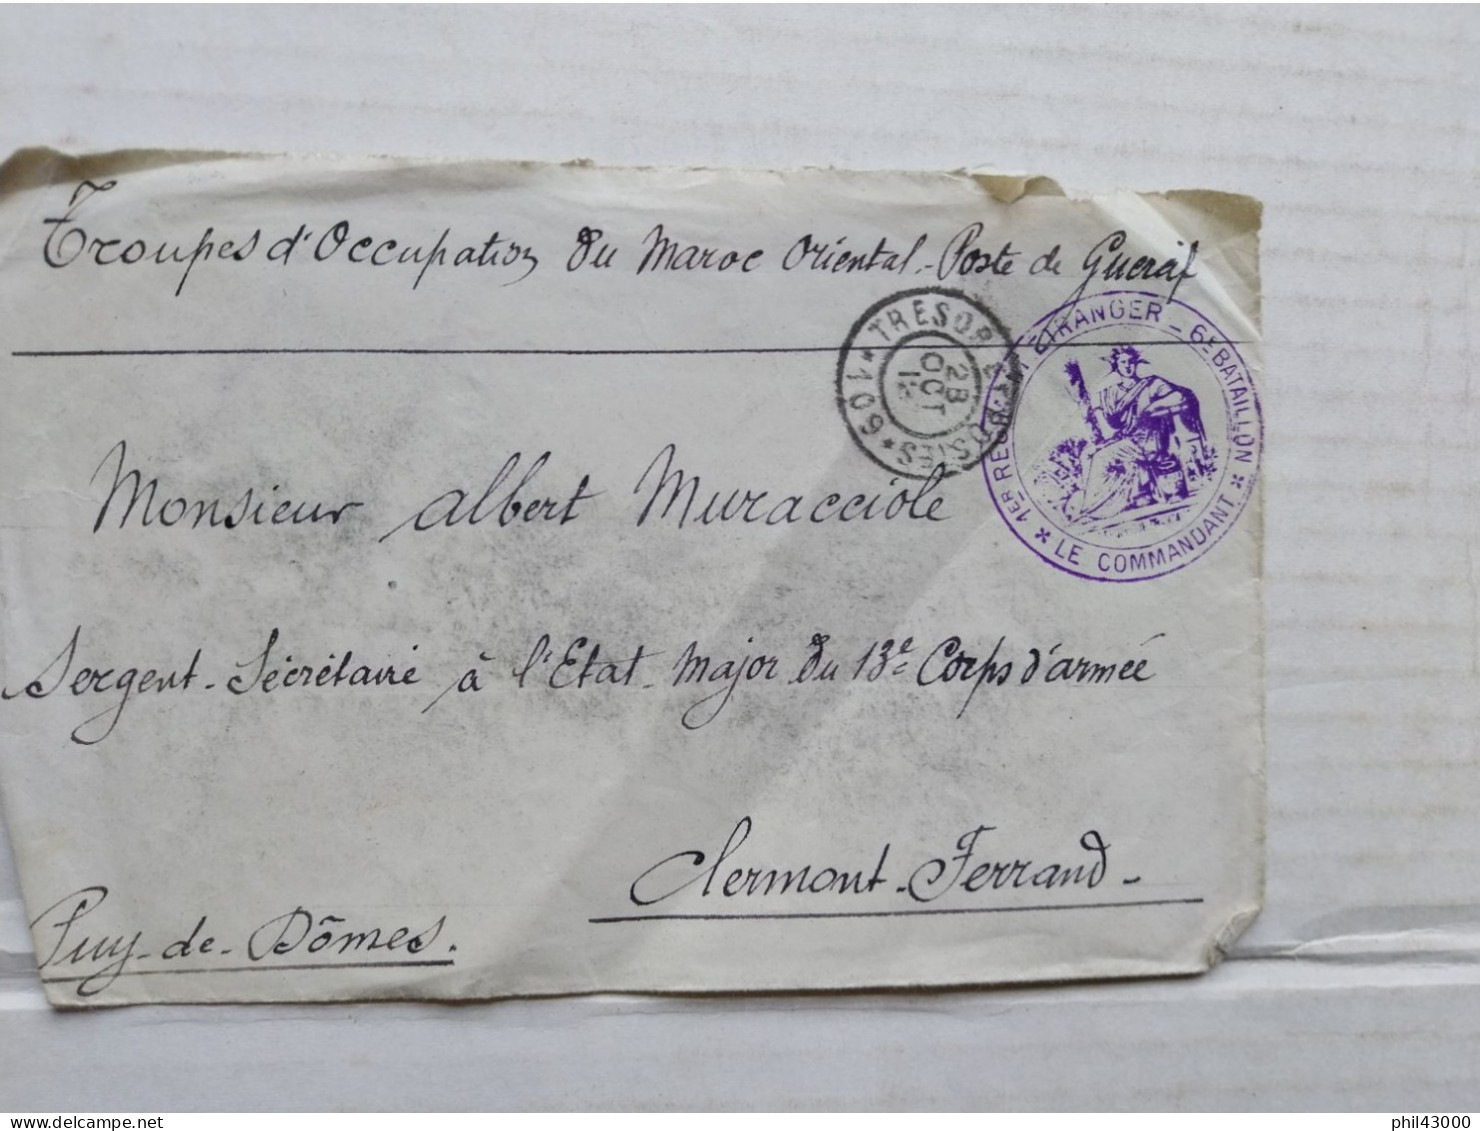 Troupes d'Occupation du Maroc Oriental - Poste de Guerãf
* TRESOR ET POSTES * 601 *
28
OCT
12
1ER REGIMENT ÉTRANGER - 6E BATAILLON
* LE COMMANDANT *
Monsieur Albert Muracciole
Sergent-Sécrétaire à l'Etat-Major du 13e Corps d'armée
Clermont-Ferrand-
Puy-de-Dômes.
delcampe.net
phil43000